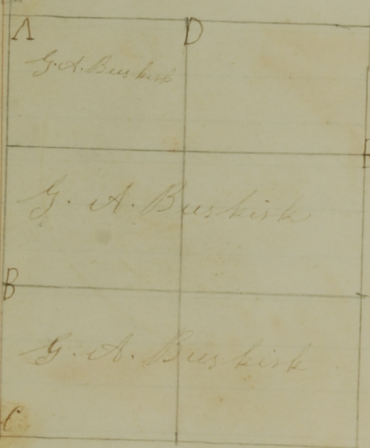 A D
G. A. Buskirk
G. A. Buskirk
B
G. A. Buskirk
C